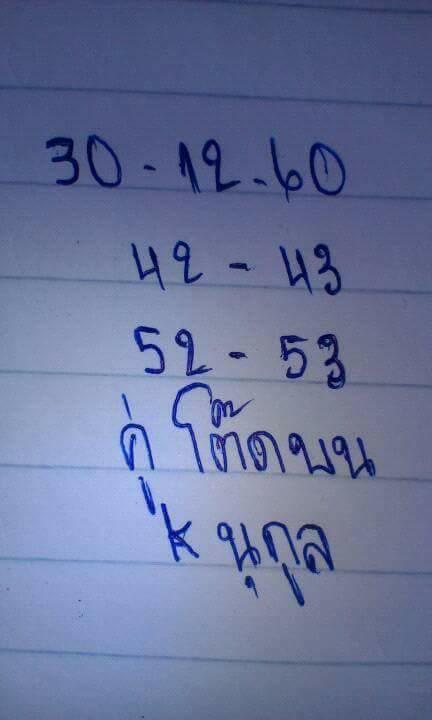 30-12-60
42-43
52-53
คู่โต๊ดบน
k นุกูล